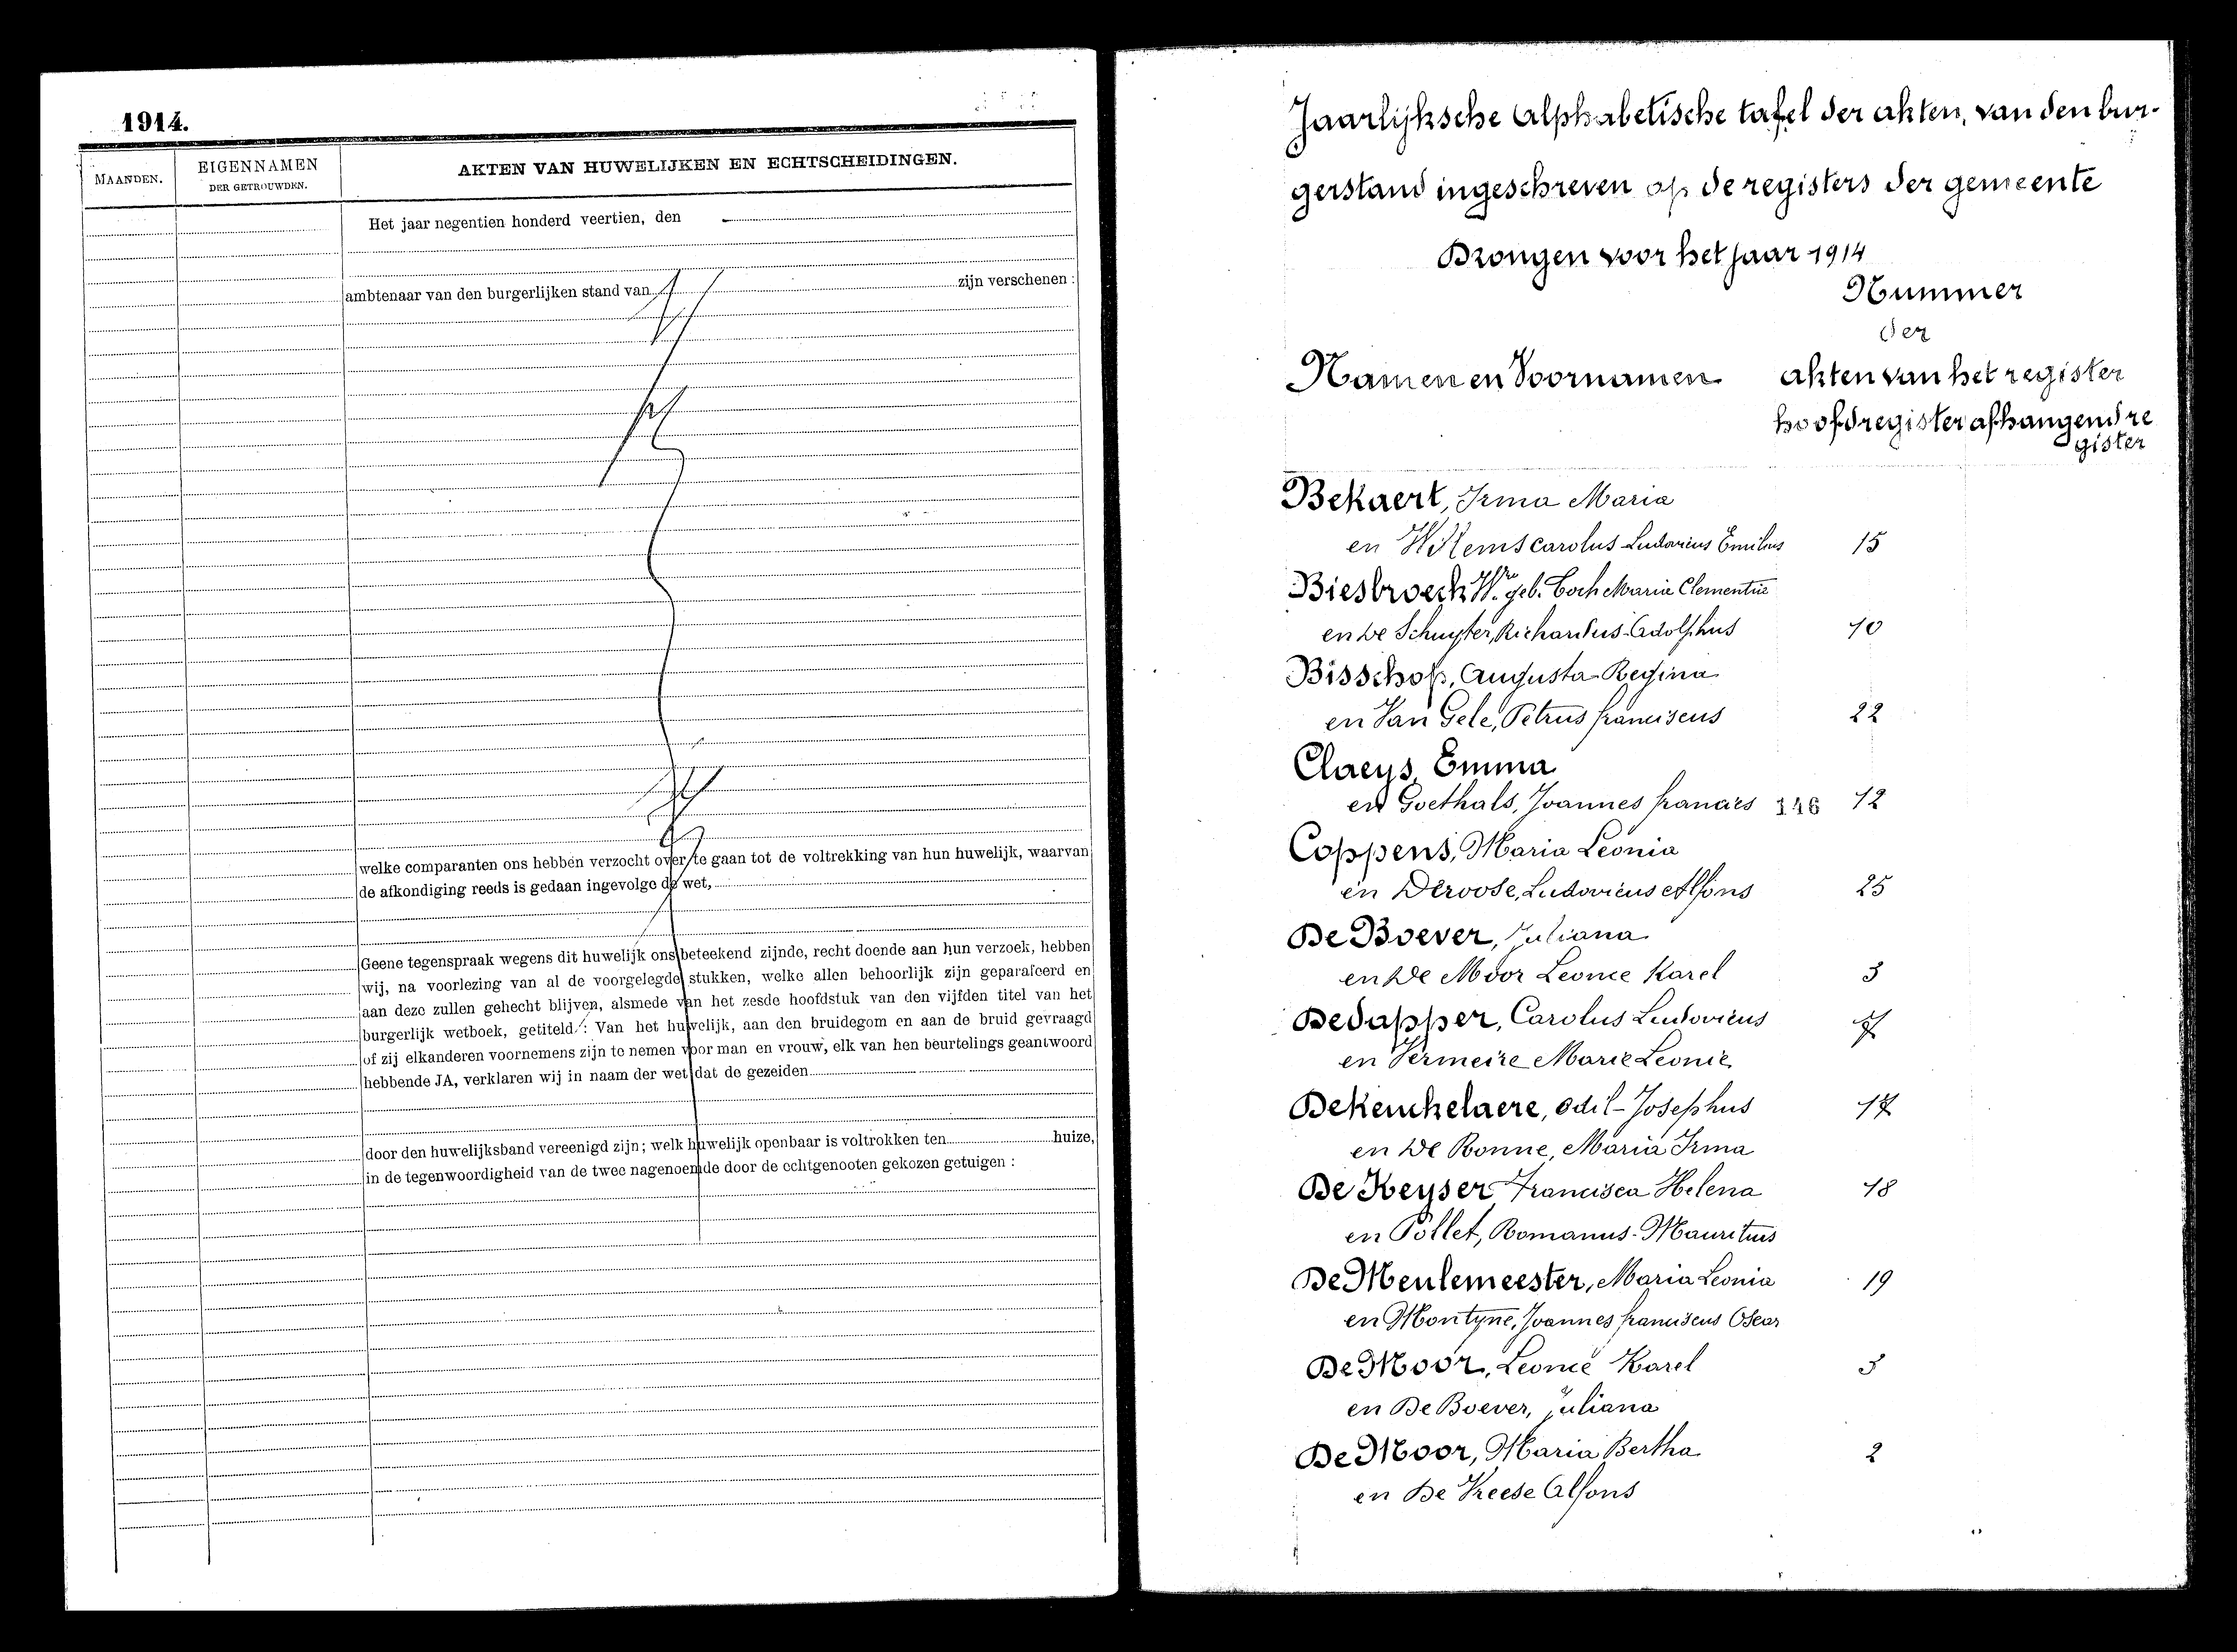 1914.
MAANDEN.
EIGENNAMEN
DER GETROUWDEN.
AKTEN VAN HUWELIJKEN EN ECHTSCHEIDINGEN.
Het jaar negentien honderd veertien, den
ambtenaar van den burgerlijken stand van zijn verschenen :
welke comparanten ons hebben verzocht over te gaan tot de voltrekking van hun huwelijk, waarvan
de afkondiging reeds is gedaan ingevolge de wet,
Geene tegenspraak wegens dit huwelijk ons beteekend zijnde, recht doende aan hun verzoek, hebben
wij, na voorlezing van al de voorgelegde stukken, welke allen behoorlijk zijn geparafeerd en
aan deze zullen gehecht blijven, alsmede van het zesde hoofdstuk van den vijfden titel van het
burgerlijk wetboek, getiteld : Van het huwelijk, aan den bruidegom en aan de bruid gevraagd
of zij elkanderen voornemens zijn te nemen voor man en vrouw, elk van hen beurtelings geantwoord
hebbende JA, verklaren wij in naam der wet dat de gezeiden
door den huwelijksband vereenigd zijn; welk huwelijk openbaar is voltrokken ten huize,
in de tegenwoordigheid van de twee nagenoemde door de echtgenooten gekozen getuigen :
Jaarlijksche Alphabetische tafel der akten, van den bur-
gerstand ingeschreven op de registers der gemeente
Drongen voor het jaar 1914
Nummer
der
Namen en Voornamen akten van het register
hoofdregister afhangend re
gister
Bekaert, Irma Maria
en Willems Carolus Ludovicus Emilius 15
Biesbroeck Wwe geb. Coch Maria Clementie
en De Schuyter, Richardus-Adolphus 10
Bisschop, Augusta-Regina
en Van Gele, Petrus franciscus 22
Claeys, Emma
en Goethals, Joannes francies 146 12
Coppens, Maria Leonia
en Deroose, Ludovicus Alfons 25
De Boever, Juliana
en De Moor Leonie Karel 3
Dedapper, Carolus Ludovicus 7
en Vermeire Marie Leonie
Dekeuckelaere, Odil-Josephus 17
en De Ronne, Maria Irma
De Keyser Francisca Helena 18
en Pollet, Romanus-Mauritius
De Meulemeester, Maria Leonia 19
en Montyne, Joannes franciscus Oscar
De Moor, Leonie Karel 3
en De Boever, Juliana
De Moor, Maria Bertha 2
en De Vreese Alfons